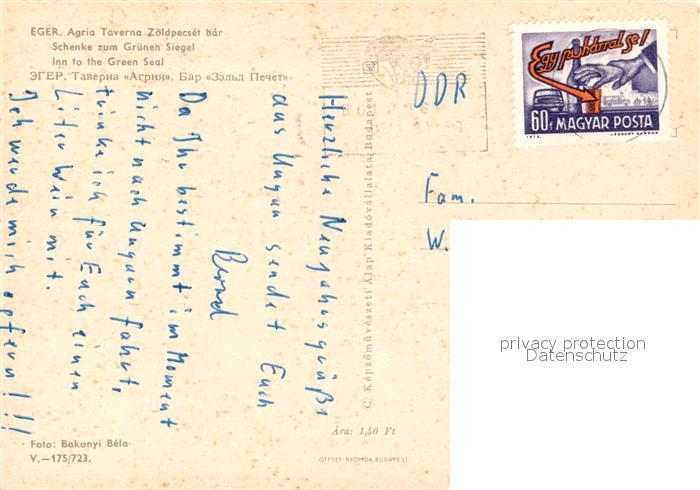 EGER. Agria Taverna Zöldpecsét bár
Schenke zum Grünen Siegel
Inn to the Green Seal
ЭГЕР. Таверна «Агрия». Бар «Зэльд Печет»
Herzliche Neujahrsgrüße
aus Ungarn sendet Euch
Bernd
Da Ihr bestimmt im Moment
nicht nach Ungarn fahrt,
trinke ich für Euch einen
Liter Wein mit.
Ich werde mich opfern!!!
Foto: Bakonyi Béla
V.—175/723.
© Képzőművészeti Alap Kiadóvállalata, Budapest
Ára: 1,50 Ft
OFFSET-NYOMDA, BUDAPEST
Egy pohárral se!
60f MAGYAR POSTA
1973. LÉGRÁDY SÁNDOR
DDR
Fam.
W.
privacy protection
Datenschutz